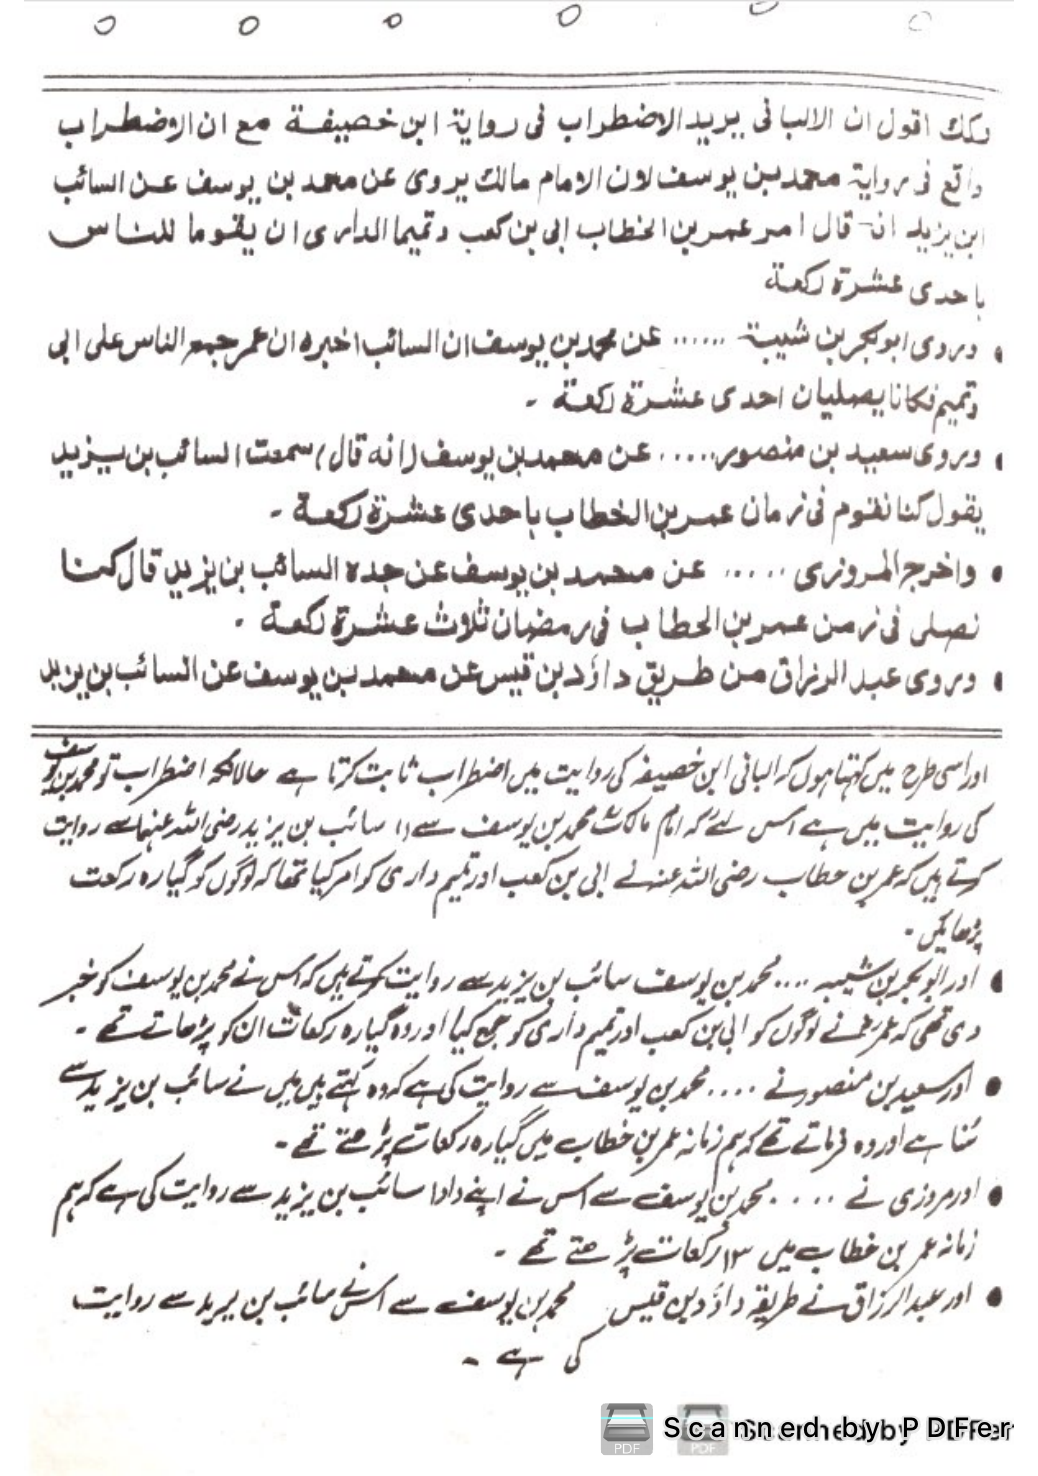 اقول ان الالبانی یرید الاضطراب فی روایة ابن خصیفة مع ان الاضطراب
واقع فی روایة محمد بن یوسف لان الامام مالک یروی عن محمد بن یوسف عن السائب
ابن یزید انہ قال امر عمر بن الخطاب ابی بن کعب و تمیما الداری ان یقوما للناس
باحدی عشرة رکعة
• وروی ابوبکر بن شیبة ...... عن محمد بن یوسف ان السائب اخبرہ ان عمر جمع الناس علی ابی
وتمیم فکانا یصلیان احدی عشرة رکعة ۔
• وروی سعید بن منصور ..... عن محمد بن یوسف (انہ قال) سمعت السائب بن یزید
یقول کنا نقوم فی زمان عمر بن الخطاب باحدی عشرة رکعة ۔
• واخرج المروزی ..... عن محمد بن یوسف عن جدہ السائب بن یزید قال کنا
نصلی فی زمن عمر بن الخطاب فی رمضان ثلاث عشرة رکعة ۔
• وروی عبد الرزاق من طریق داؤد بن قیس عن محمد بن یوسف عن السائب بن یزید
اور اسی طرح میں کہتا ہوں کہ البانی ابن خصیفہ کی روایت میں اضطراب ثابت کرتا ہے حالانکہ اضطراب تو محمد بن یوسف
کی روایت میں ہے اس لئے کہ امام مالکؒ محمد بن یوسف سے سائب بن یزید رضی اللہ عنہما سے روایت
کرتے ہیں کہ عمر بن خطاب رضی اللہ عنہ نے ابی بن کعب اور تمیم داری کو امر کیا تھا کہ لوگوں کو گیارہ رکعت
پڑھائیں ۔
• اور ابوبکر بن شیبہ .... محمد بن یوسف سائب بن یزید سے روایت کرتے ہیں کہ اس نے محمد بن یوسف کو خبر
دی تھی کہ عمرؓ نے لوگوں کو ابی بن کعب اور تمیم داری کو جمع کیا اور وہ گیارہ رکعات ان کو پڑھاتے تھے ۔
• اور سعید بن منصور نے .... محمد بن یوسف سے روایت کی ہے کہ وہ کہتے ہیں میں نے سائب بن یزید سے
سُنا ہے اور وہ فرماتے تھے کہ ہم زمانہ عمر بن خطاب میں گیارہ رکعات پڑھتے تھے ۔
• اور مروزی نے .... محمد بن یوسف سے اس نے اپنے دادا سائب بن یزید سے روایت کی ہے کہ ہم
زمانہ عمر بن خطاب میں ۱۳ رکعات پڑھتے تھے ۔
• اور عبد الرزاق نے طریقہ داؤد بن قیس محمد بن یوسف سے اس نے سائب بن یزید سے روایت
کی ہے ۔
Scanned by PDFer
Scanned by PDFer